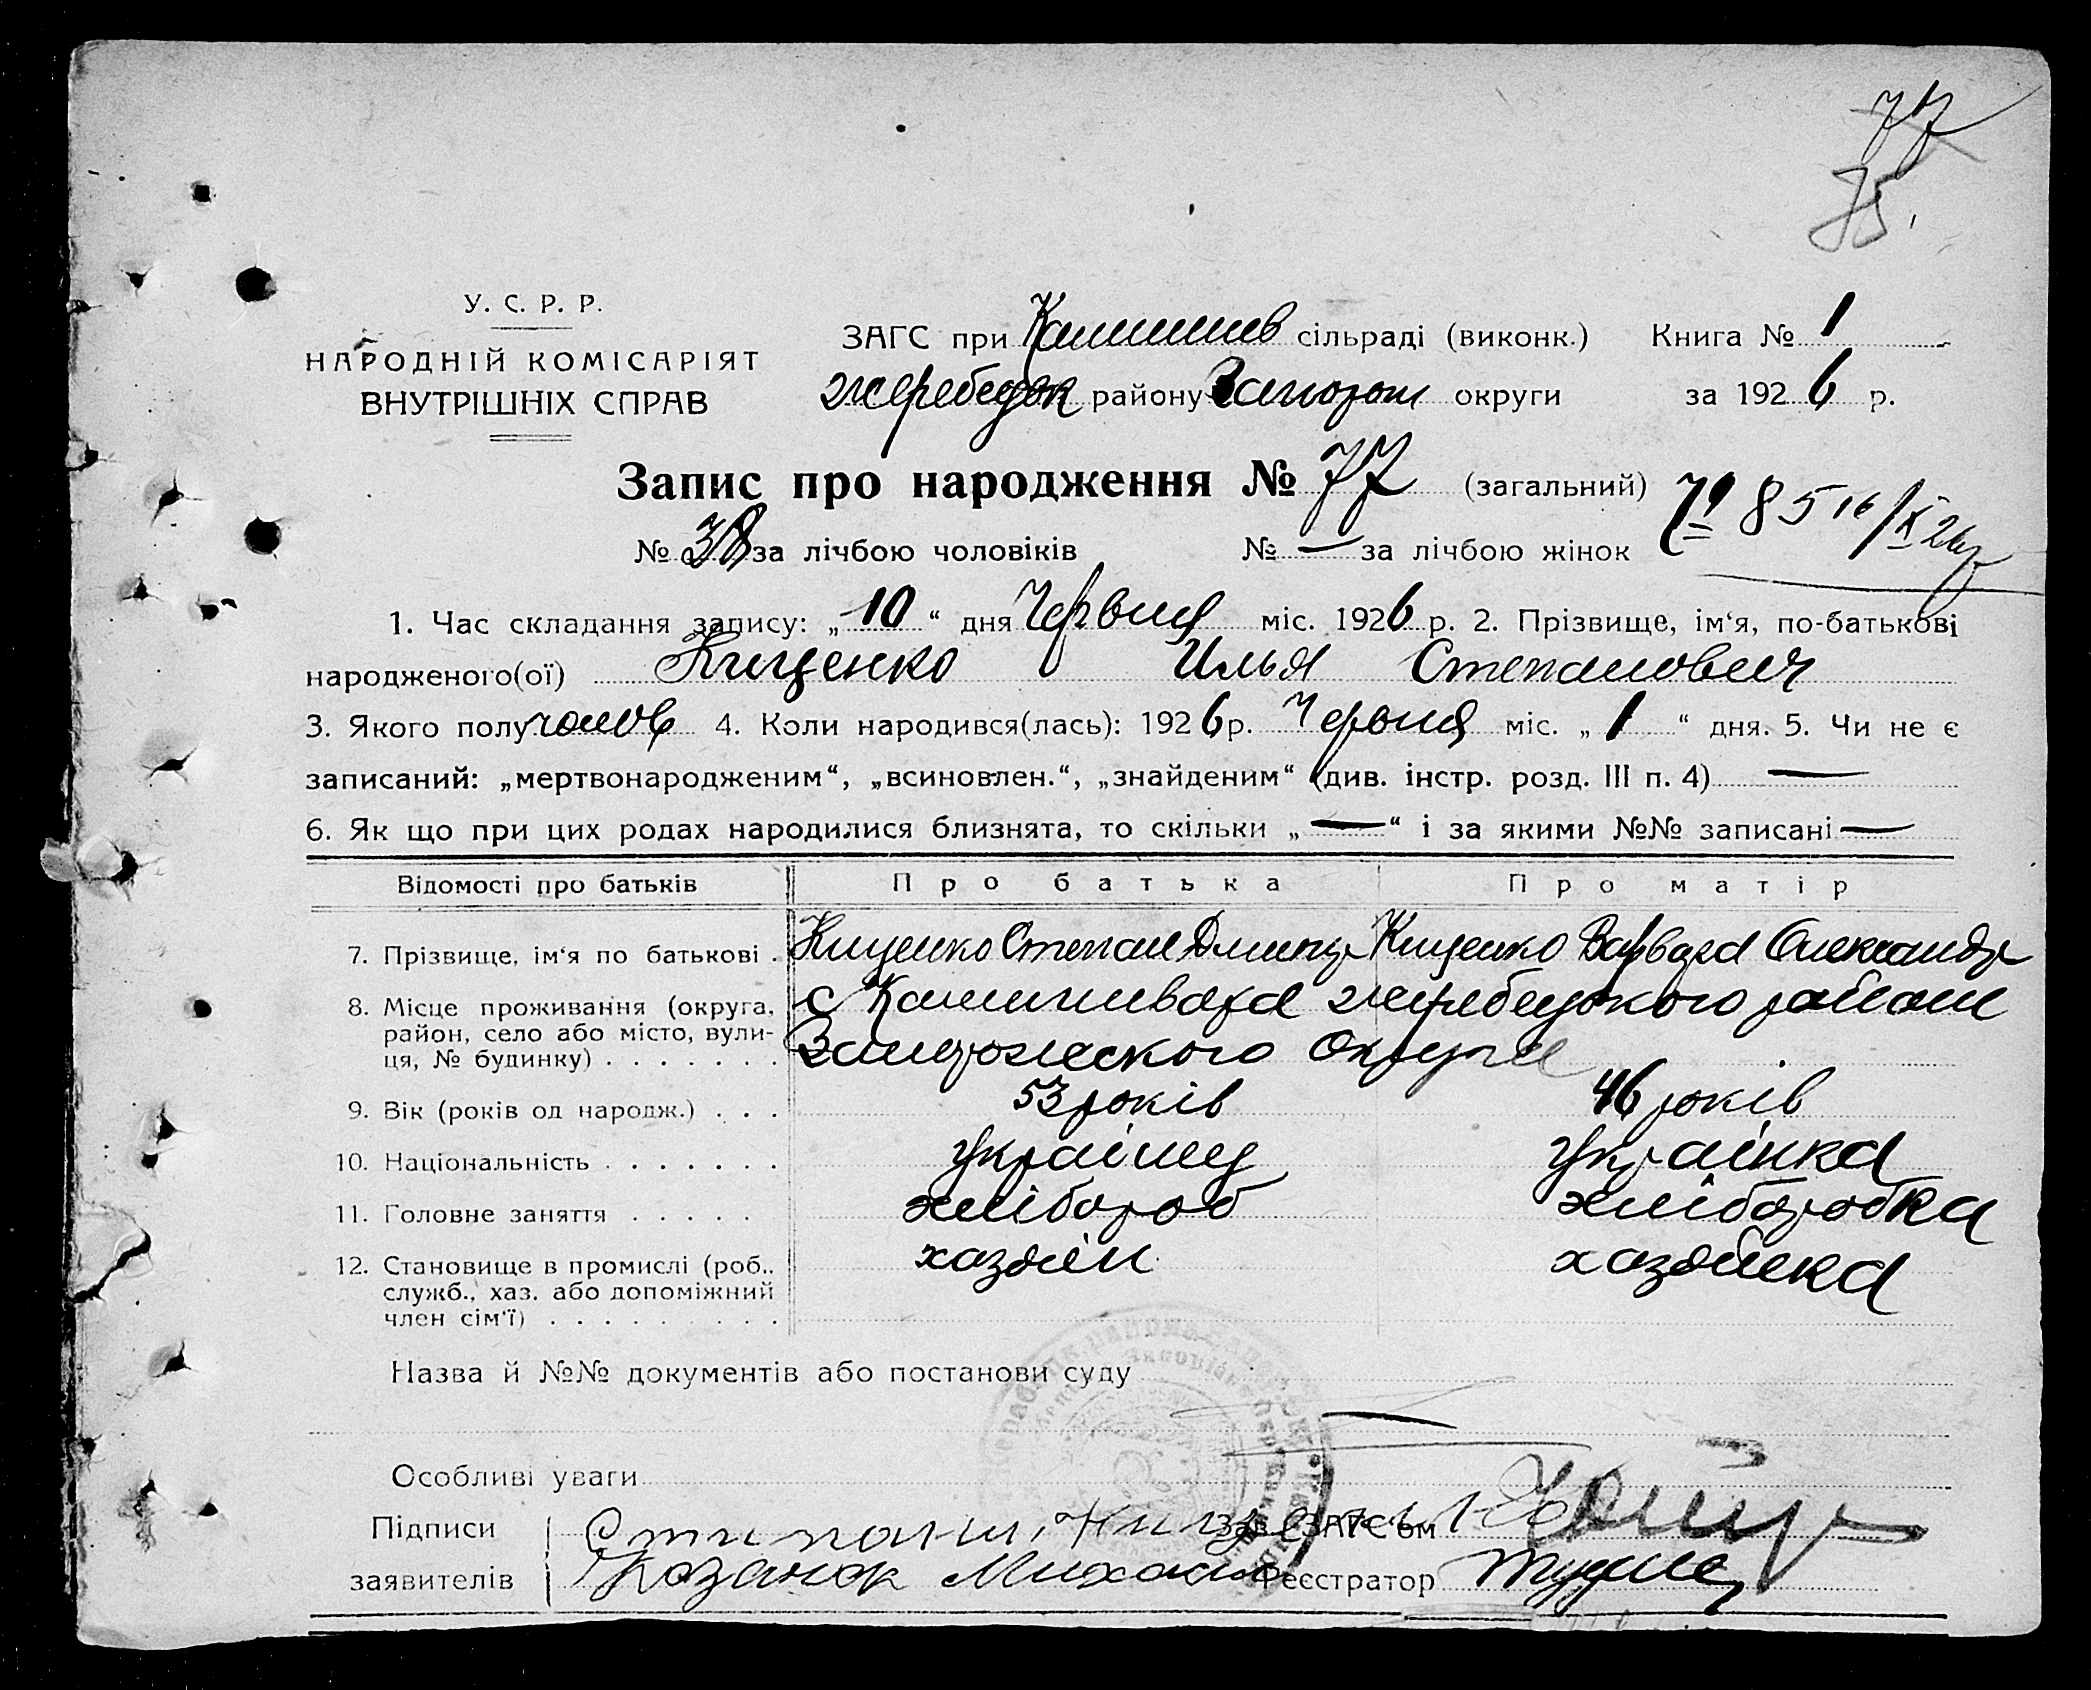 77
75
У. С. Р. Р.
НАРОДНІЙ КОМІСАРІЯТ
ВНУТРІШНІХ СПРАВ
ЗАГС при сільраді (виконк.) Книга № 1
жеребецьк району Запорож округи за 1926 р.
Запис про народження № 77 (загальний)
№ 38 за лічбою чоловіків № — за лічбою жінок
85 16/IX 26
1. Час складання запису: „10“ дня Червця міс. 1926 р. 2. Прізвище, ім'я, по-батькові
народженого(ої) Кищенко Илья Степанович
3. Якого полу чолов 4. Коли народився(лась): 1926 р. Червця міс. „1“ дня. 5. Чи не є
записаний: „мертвонародженим“, „всиновлен.“, „знайденим“ (див. інстр. розд. III п. 4) —
6. Як що при цих родах народилися близнята, то скільки „—“ і за якими №№ записані —
Відомості про батьків Про батька Про матір
7. Прізвище, ім'я по батькові . Кищенко Степан Дмитр Кищенко Варвара Олександр
8. Місце проживання (округа, с жеребецького району
район, село або місто, вули- Запорожського Округи
ця, № будинку) . . . . . . .
9. Вік (років од народж.) . . . 53 років 46 років
10. Національність . . . . . . . українец українка
11. Головне заняття . . . . . хлібороб хліборобка
12. Становище в промислі (роб., хазяїн хазяйка
служб., хаз. або допоміжний
член сім'ї) . . . . . . . . .
Назва й №№ документів або постанови суду
Особливі уваги
Підписи Зав. ЗАГС'ом
заявителів Козачок Михаил Реєстратор